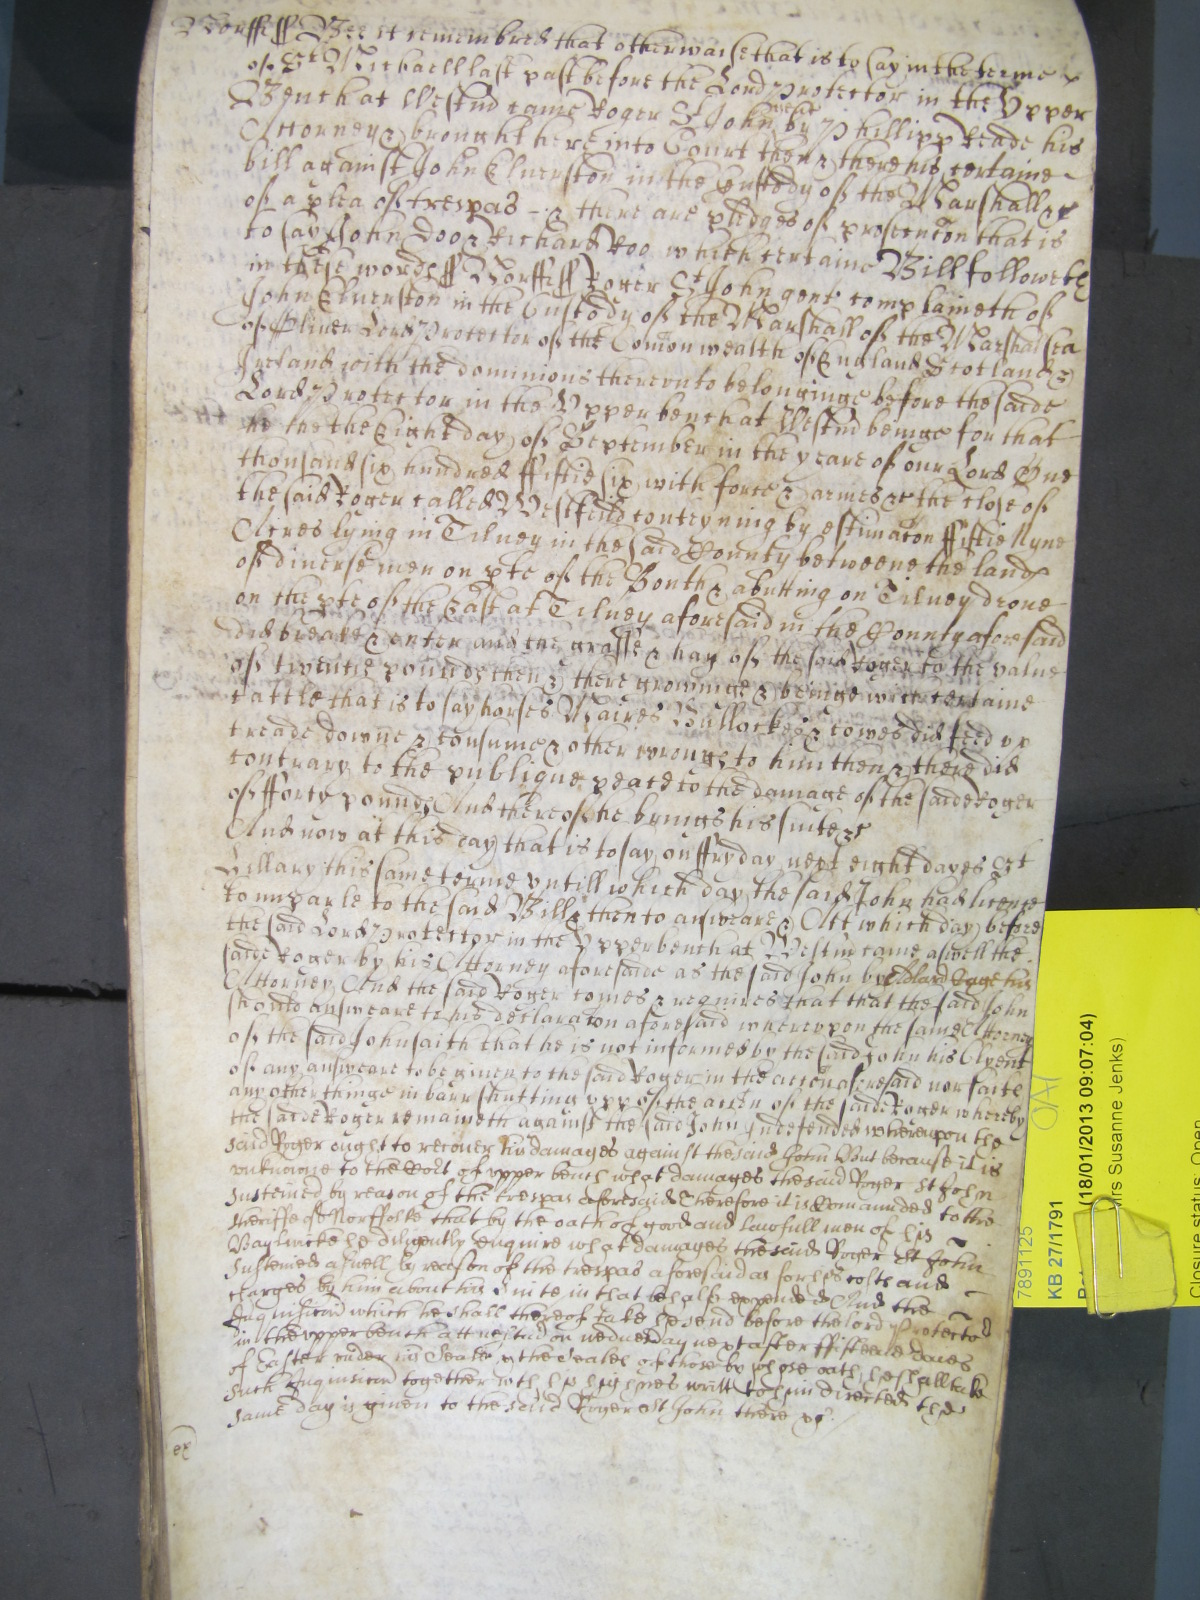 Norff ss Bee it remembred that otherwaise that is to say in the terme
of St Michaell last past before the Lord Protector in the Upper
Bench at Westm came Roger St John gent by Phillipp Reade his
Attorney & brought here into Court then & there his certaine
bill against John Elverston in the Custody of the Marshall &c
of a plea of trespas & there are pledges of prosecucon that is
to say John Doo & Richard Roo which certaine Bill followeth
in these words ss Norff ss Roger St John gent complaineth of
John Elverston in the Custody of the Marshall of the Marshalsea
of Oliver Lord Protector of the Comonwealth of England Scotland &
Ireland with the dominions thereunto belonginge before the saide
Lord Protector in the Upper bench at Westm beinge for that
he the the Eight day of September in the yeare of our Lord One
thousand six hundred ffiftie six with force & armes &c the close of
the said Roger called Westfeild conteyning by estimacon ffiftie Nyne
Acres lying in Tilney in the said County betweene the lands
of diverse men on pte of the South & abutting on Tilney drove
on the pte of the East at Tilney aforesaid in the County aforesaid
did breake & enter and the grasse & hay of the said Roger to the value
of twentie pounds then & there growinge & beinge with certaine
cattle that is to say horses Maires Bullockes & cowes did feed up
treade downe & consume & other wrongs to him then & there did
contrary to the publique peace to the damage of the saide Roger
of fforty pounds And thereof he brings his suite &c
And now att this day that is to say on ffryday next eight dayes St
Hillary this same terme untill which day the said John had licence
to imparle to the said Bill & then to answeare & Att which day before
the said Lord Protector in the Upper bench at Westm came aswell the
saide Roger by his Attorney aforesaide as the said John by Page his
Attorney And the said Roger comes & requires that that the said John
should answeare to his declaracon aforesaid whereupon the same Attorney
of the said John saith that he is not informed by the said John his Clyent
of any answeare to be given to the said Roger in the accon aforesaid nor saith
any other thinge in barr shutting upp of the accon of the saide Roger whereby
the saide Roger remaineth against the said John Undefended whereupon the
said Roger ought to recover his damages against the said John But because it is
unknowne to the Court of upper bench what damages the said Roger St John
susteined by reason of the trespas aforesaid Therefore it is Comaunded to the
sheriffe of Norffolke that by the oath of good and lawfull men of his
Baylwicke he diligently enquire what damages the said Roger St John
susteined aswell by reason of the trespas aforesaid as for his costs and
charges by him about his suite in that behalf expended And the
Inquisicon which he shall thereof take he send before the lord Protector
in the upper bench att westm on wednesday next after ffifteene daies
of Easter under his Seale & the Seales of those by whose oath he shall take
such Inquisicon together with his highnes writt to him directed the
same day is given to the said Roger St John there &c
ex
7891125
KB 27/1791
(18/01/2013 09:07:04)
Mrs Susanne Jenks)
Closure status Open